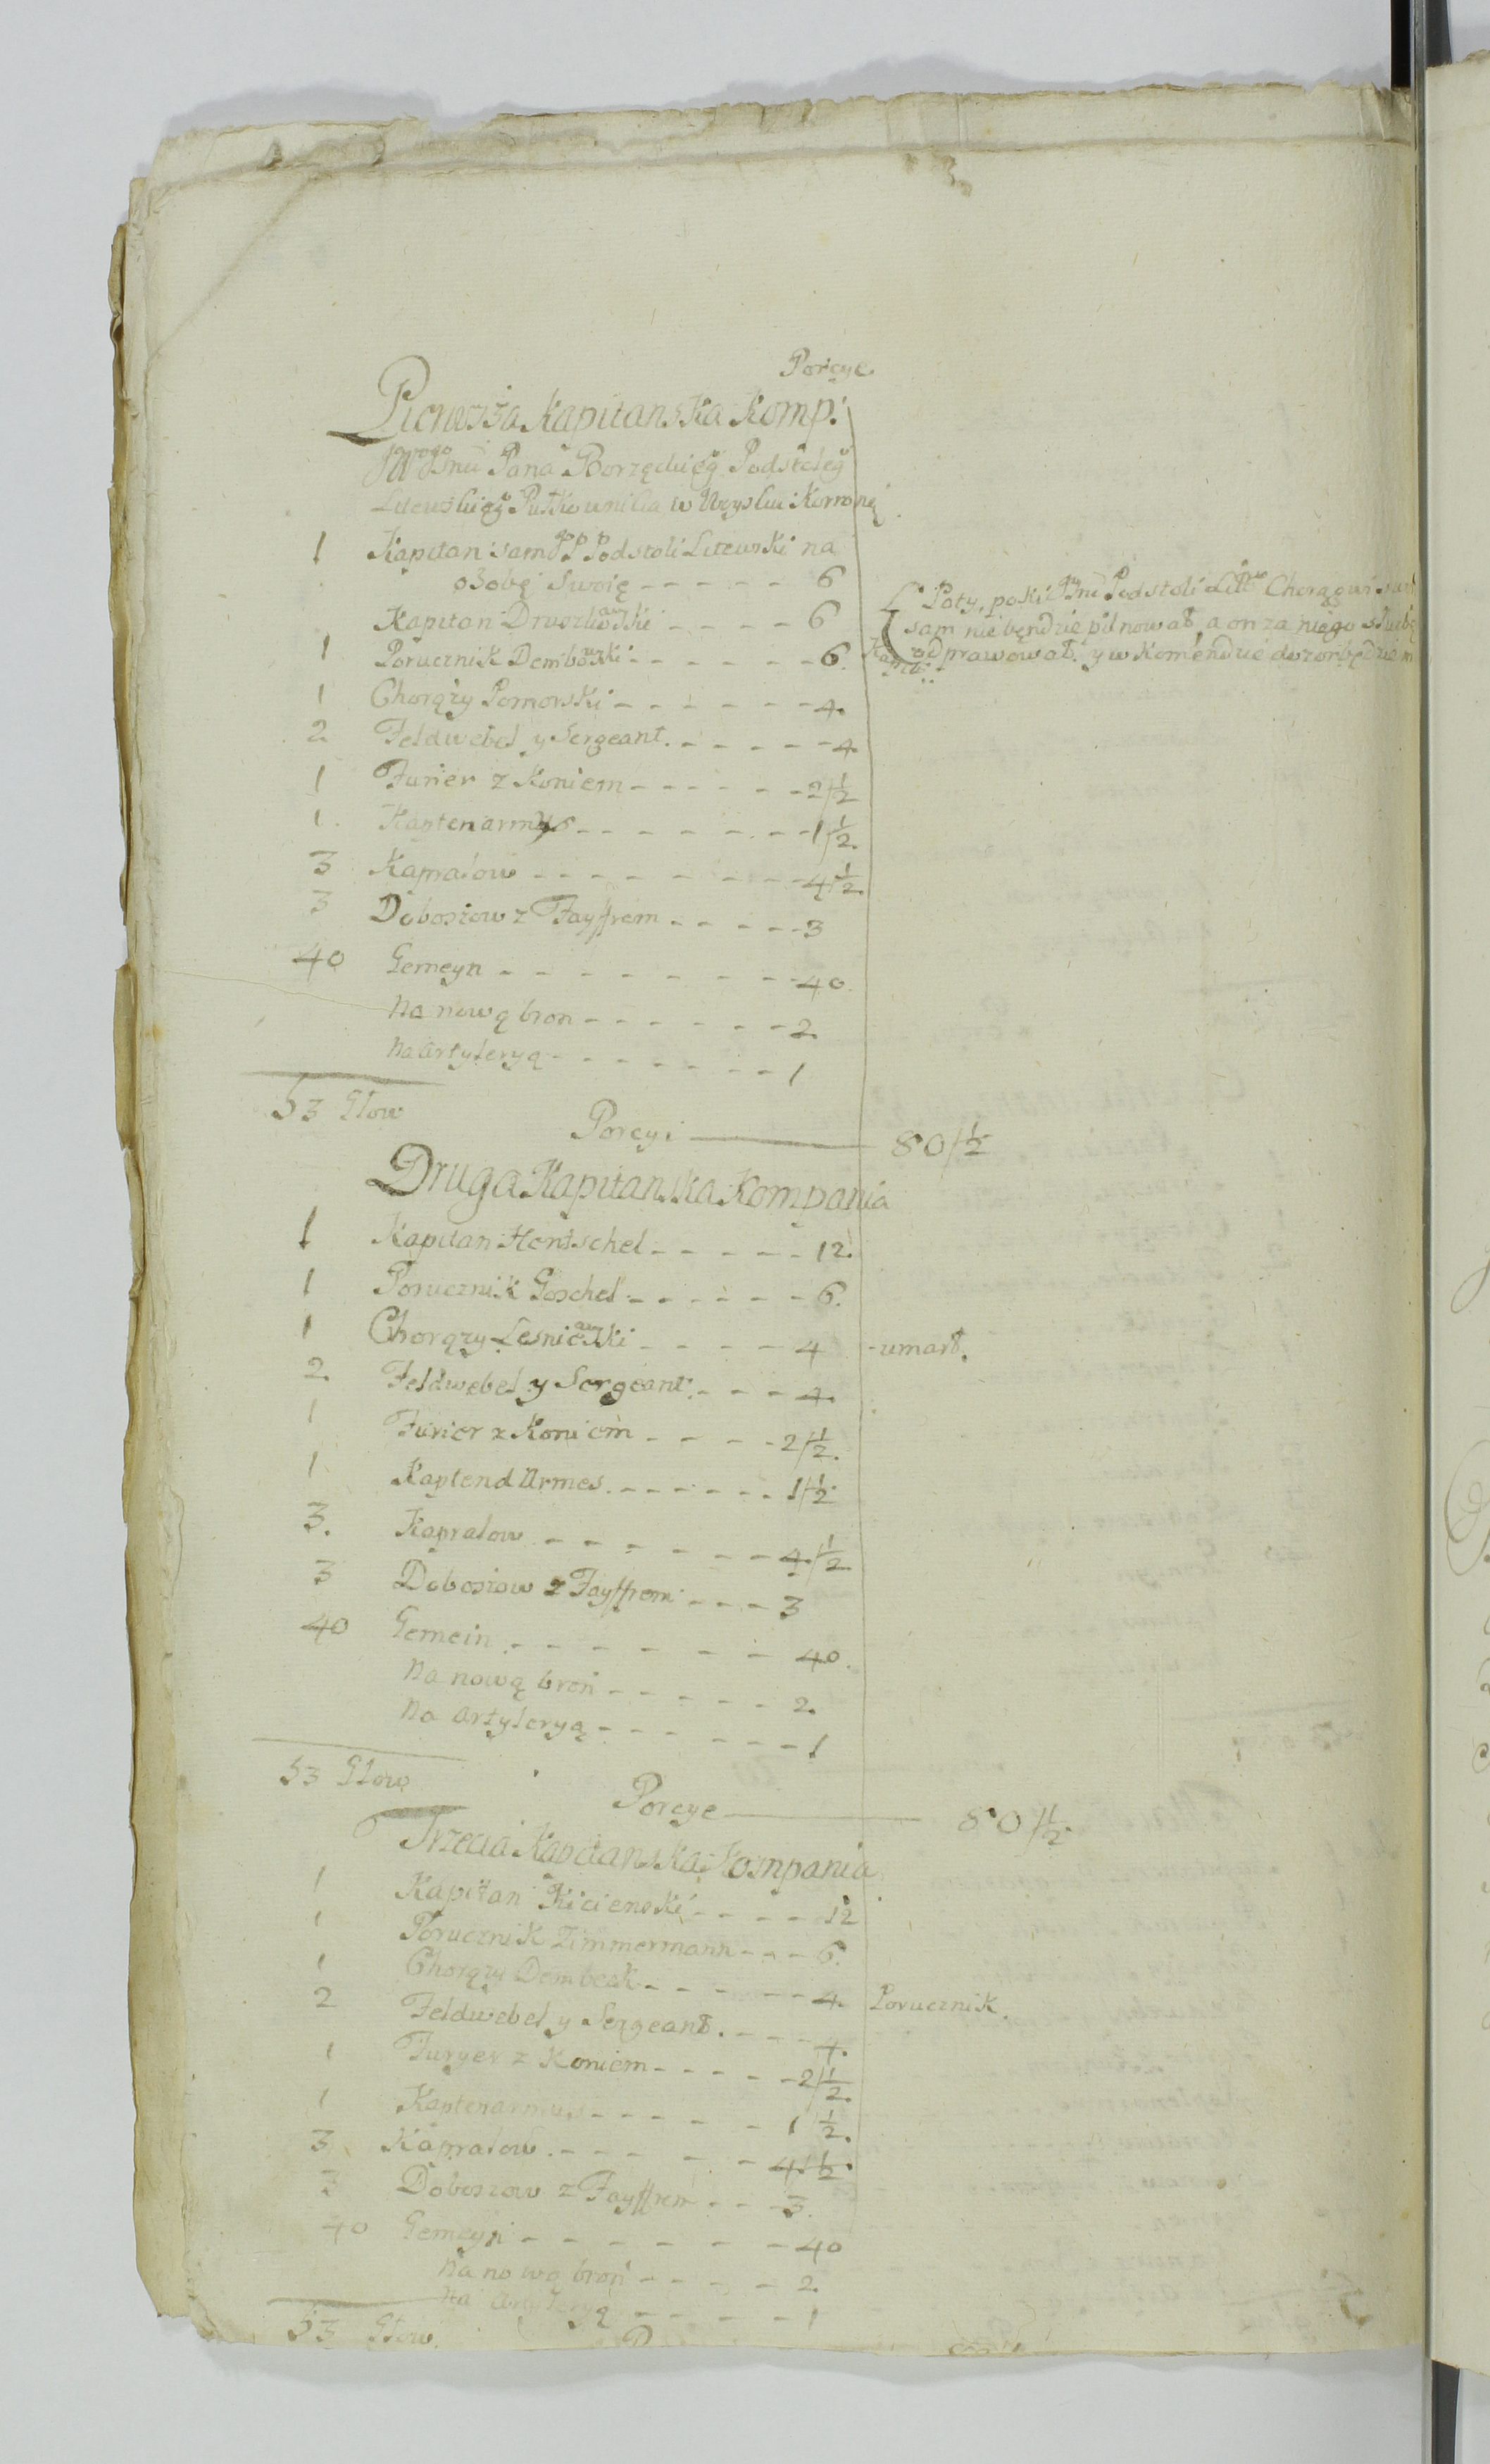 Porcye
Pierwsza Kapitanska Komp:
Pana Borzęckieg Podstoleg
Litewskieg Pułkownika w Woysku Koronną
1 Kapitan sam JPP Podstoli Litewski na
osobę Swoię - - - - - 6
Kapitan - - - - 6
Poty, poki Podstoli Litt Chorągwi
sam nie będzie pilnował, a on za niego służbę
odprawował. y w Komendzie
1 Porucznik Dembowski - - - - - - 6.
1 Chorąży Pomorski - - - - - - 4.
2 Feldwebel y Sergeant. - - - - - 4
1 Furier z Koniem - - - - - - 2 1/2
1. Kaptenarmys - - - - - - - 1 1/2.
3 Kapralow - - - - - - - 4 1/2.
3 Doboszow z Fayffrem - - - - - 3
40 Gemeyn - - - - - - - 40.
Na nową bron - - - - - - 2.
Na Artyleryą - - - - - - - 1
53 Głow
Porcyi 80 1/2
Druga Kapitanska Kompania
1 Kapitan Hentschel - - - - - 12.
1 Porucznik Goschel - - - - - - 6.
1 Chorąży Lesniewski - - - - 4 - umarł.
2. Feldwebel y Sergeant. - - - 4.
1 Furier z Koniem - - - - 2 1/2.
1 KaptendArmes. - - - - - - 1 1/2
3. Kapralow - - - - - - - 4. 1/2
3 Doboszow z Fayffrem - - - 3
40 Gemein. - - - - - - 40.
Na nową broń - - - - - 2.
Na Artyleryą - - - - - - 1
53 Głow
Porcye 80 1/2
Trzecia Kapitanska Kompania
1 Kapitan Kicienski - - - - 12
1 Porucznik Zimmermann - - - 6.
1 Chorąży Dembeck - - - - - - 4. Porucznik.
2 Feldwebel y Sergeant. - - - - 4.
1 Furyer z Koniem - - - - - 2 1/2.
1 Kaptenarmus - - - - - 1 1/2.
3 Kapralow. - - - - - 4. 1/2.
3 Doboszow z Fayffrem - - - 3.
40 Gemeyn - - - - - - - 40
Na nową broń - - - - 2.
Na Artyleryą - - - - - 1
53 Głow.